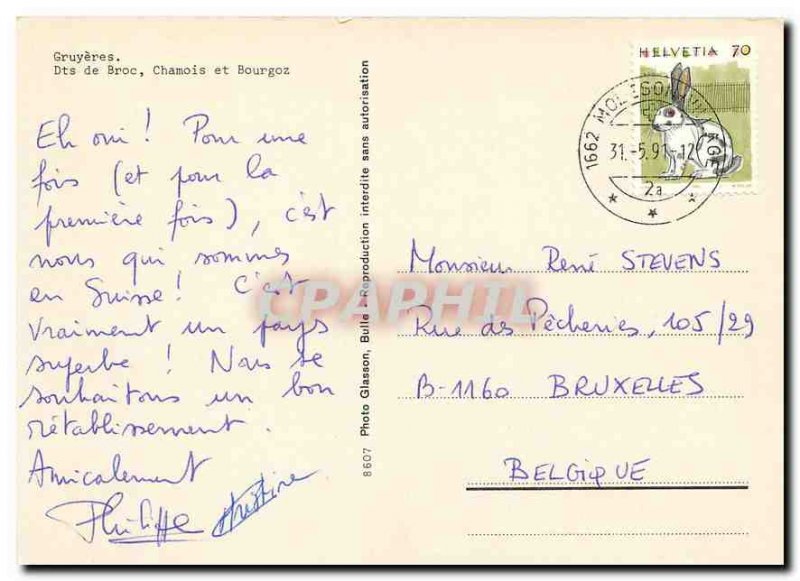 Gruyères.
Dts de Broc, Chamois et Bourgoz
Eh oui ! Pour une
fois (et pour la
première fois), c'est
nous qui sommes
en Suisse ! C'est
vraiment un pays
superbe ! Nous te
souhaitons un bon
rétablissement.
Amicalement
Philippe Christine
8607 Photo Glasson, Bulle - Reproduction interdite sans autorisation
HELVETIA 70
1662
31.-5.91-12
2a
Monsieur René STEVENS
Rue des Pêcheries, 105/29
B-1160 BRUXELLES
BELGIQUE
CPAPHIL